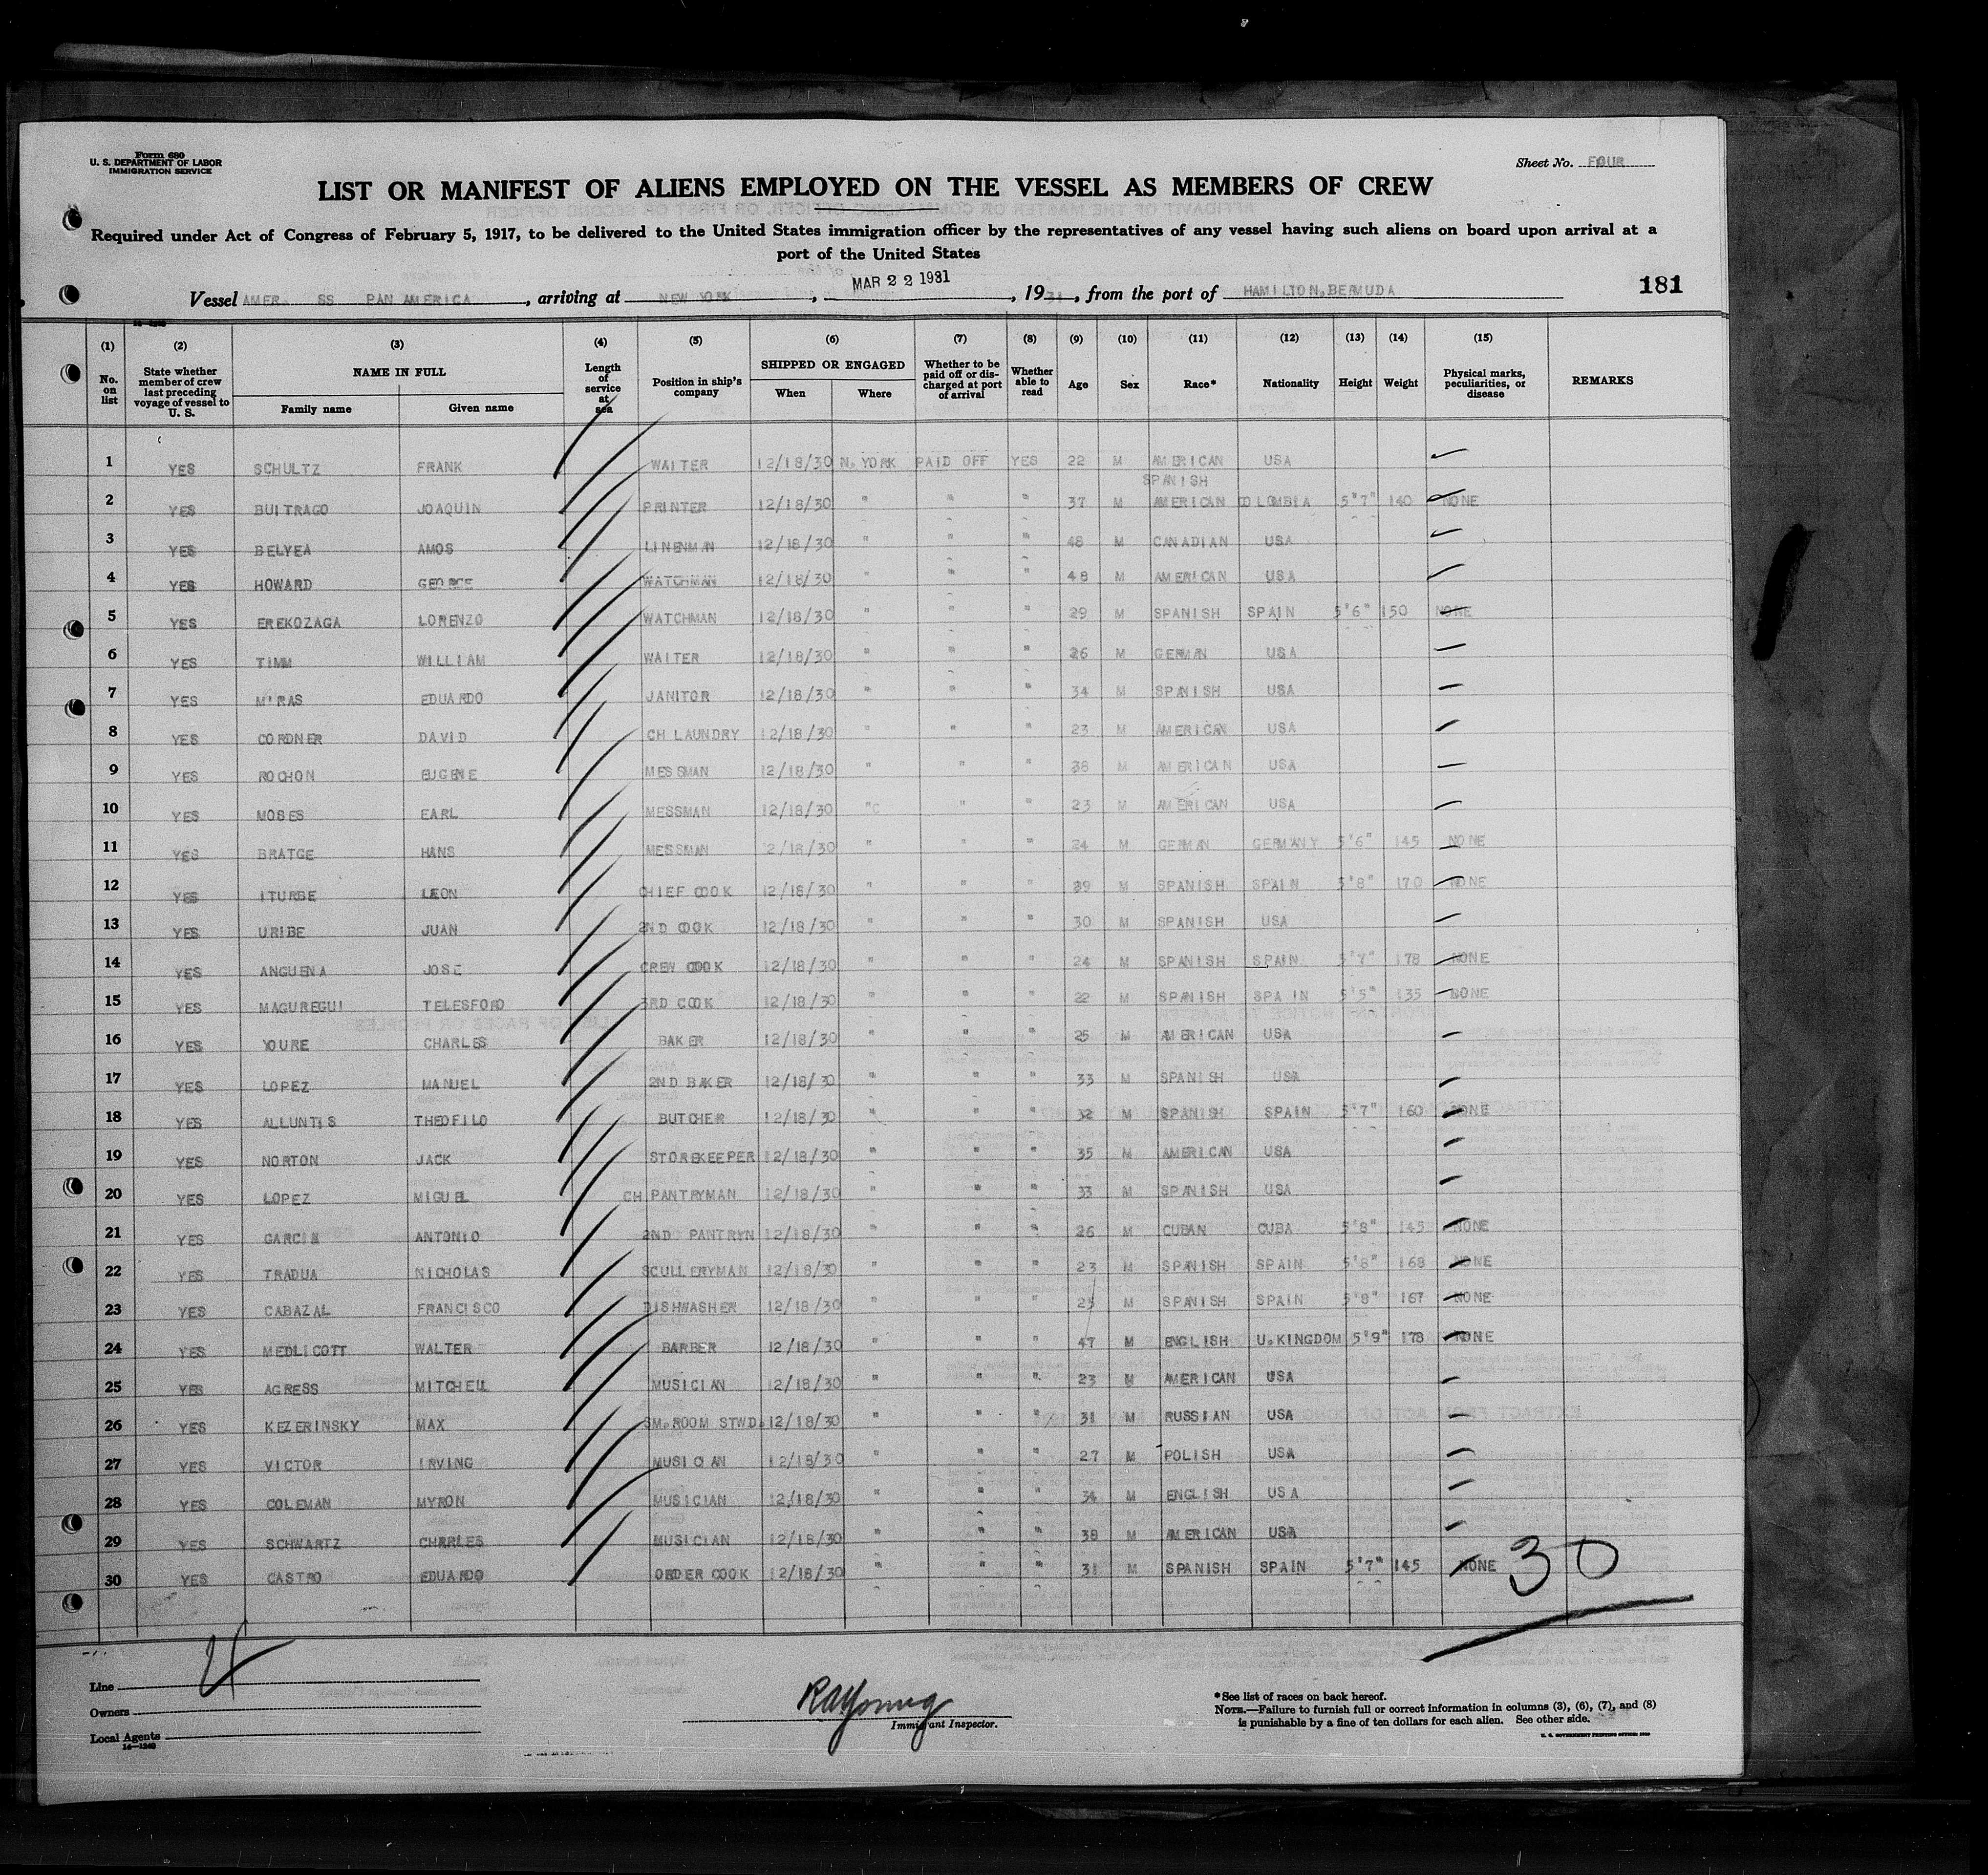 Form 680
U. S. DEPARTMENT OF LABOR
IMMIGRATION SERVICE
Sheet No. FOUR
LIST OR MANIFEST OF ALIENS EMPLOYED ON THE VESSEL AS MEMBERS OF CREW
Required under Act of Congress of February 5, 1917, to be delivered to the United States immigration officer by the representatives of any vessel having such aliens on board upon arrival at a
port of the United States
Vessel AMER. SS PAN AMERICA, arriving at NEW YORK, MAR 22 1931, 1931, from the port of HAMILTON, BERMUDA
181
(1) (2) (3) (4) (5) (6) (7) (8) (9) (10) (11) (12) (13) (14) (15)
No. on list State whether member of crew last preceding voyage of vessel to U. S. NAME IN FULL Family name Given name Length of service at sea Position in ship's company SHIPPED OR ENGAGED When Where Whether to be paid off or discharged at port of arrival Whether able to read Age Sex Race* Nationality Height Weight Physical marks, peculiarities, or disease REMARKS
1 YES SCHULTZ FRANK WAITER 12/18/30 N. YORK PAID OFF YES 22 M AMERICAN USA
2 YES BUITRAGO JOAQUIN PRINTER 12/18/30 " " " 37 M SPANISH AMERICAN COLOMBIA 5'7" 140 NONE
3 YES BELYEA AMOS LINENMAN 12/18/30 " " " 48 M CANADIAN USA
4 YES HOWARD GEORGE WATCHMAN 12/18/30 " " " 48 M AMERICAN USA
5 YES EREKOZAGA LORENZO WATCHMAN 12/18/30 " " " 29 M SPANISH SPAIN 5'6" 150 NONE
6 YES TIMM WILLIAM WAITER 12/18/30 " " " 26 M GERMAN USA
7 YES MIRAS EDUARDO JANITOR 12/18/30 " " " 34 M SPANISH USA
8 YES CORDNER DAVID CH LAUNDRY 12/18/30 " " " 23 M AMERICAN USA
9 YES ROCHON EUGENE MESSMAN 12/18/30 " " " 38 M AMERICAN USA
10 YES MOSES EARL MESSMAN 12/18/30 "C " " 23 M AMERICAN USA
11 YES BRATGE HANS MESSMAN 12/18/30 " " " 24 M GERMAN GERMANY 5'6" 145 NONE
12 YES ITURBE LEON CHIEF COOK 12/18/30 " " " 39 M SPANISH SPAIN 5'8" 170 NONE
13 YES URIBE JUAN 2ND COOK 12/18/30 " " " 30 M SPANISH USA
14 YES ANGUENA JOSE CREW COOK 12/18/30 " " " 24 M SPANISH SPAIN 5'7" 178 NONE
15 YES MAGUREGUI TELESFORO 3RD COOK 12/18/30 " " " 22 M SPANISH SPAIN 5'5" 135 NONE
16 YES YOURE CHARLES BAKER 12/18/30 " " " 25 M AMERICAN USA
17 YES LOPEZ MANUEL 2ND BAKER 12/18/30 " " " 33 M SPANISH USA
18 YES ALLUNTIS THEOFILO BUTCHER 12/18/30 " " " 32 M SPANISH SPAIN 5'7" 160 NONE
19 YES NORTON JACK STOREKEEPER 12/18/30 " " " 35 M AMERICAN USA
20 YES LOPEZ MIGUEL CH PANTRYMAN 12/18/30 " " " 33 M SPANISH USA
21 YES GARCIA ANTONIO 2ND PANTRYN 12/18/30 " " " 26 M CUBAN CUBA 5'8" 145 NONE
22 YES TRADUA NICHOLAS SCULLERYMAN 12/18/30 " " " 23 M SPANISH SPAIN 5'8" 168 NONE
23 YES CABAZAL FRANCISCO DISHWASHER 12/18/30 " " " 25 M SPANISH SPAIN 5'8" 167 NONE
24 YES MEDLICOTT WALTER BARBER 12/18/30 " " " 47 M ENGLISH U.KINGDOM 5'9" 178 NONE
25 YES AGRESS MITCHELL MUSICIAN 12/18/30 " " " 23 M AMERICAN USA
26 YES KEZERINSKY MAX SM.ROOM STWD. 12/18/30 " " " 31 M RUSSIAN USA
27 YES VICTOR IRVING MUSICIAN 12/18/30 " " " 27 M POLISH USA
28 YES COLEMAN MYRON MUSICIAN 12/18/30 " " " 34 M ENGLISH USA
29 YES SCHWARTZ CHARLES MUSICIAN 12/18/30 " " " 38 M AMERICAN USA
30 YES CASTRO EDUARDO ORDER COOK 12/18/30 " " " 31 M SPANISH SPAIN 5'7" 145 NONE
30
4
Line
Owners
Local Agents
14—1240
RA Young
Immigrant Inspector.
*See list of races on back hereof.
NOTE.—Failure to furnish full or correct information in columns (3), (6), (7), and (8)
is punishable by a fine of ten dollars for each alien. See other side.